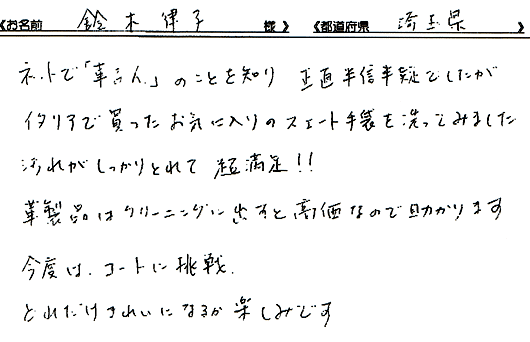 《お名前 鈴木律子 様》 《都道府県 埼玉県 》
ネットで「革らん」のことを知り 正直半信半疑でしたが
イタリアで買ったお気に入りのスエード手袋を洗ってみました
汚れがしっかりとれて 超満足!!
革製品はクリーニングに出すと高価なので助かります
今度は、コートに挑戦、
どれだけきれいになるか楽しみです